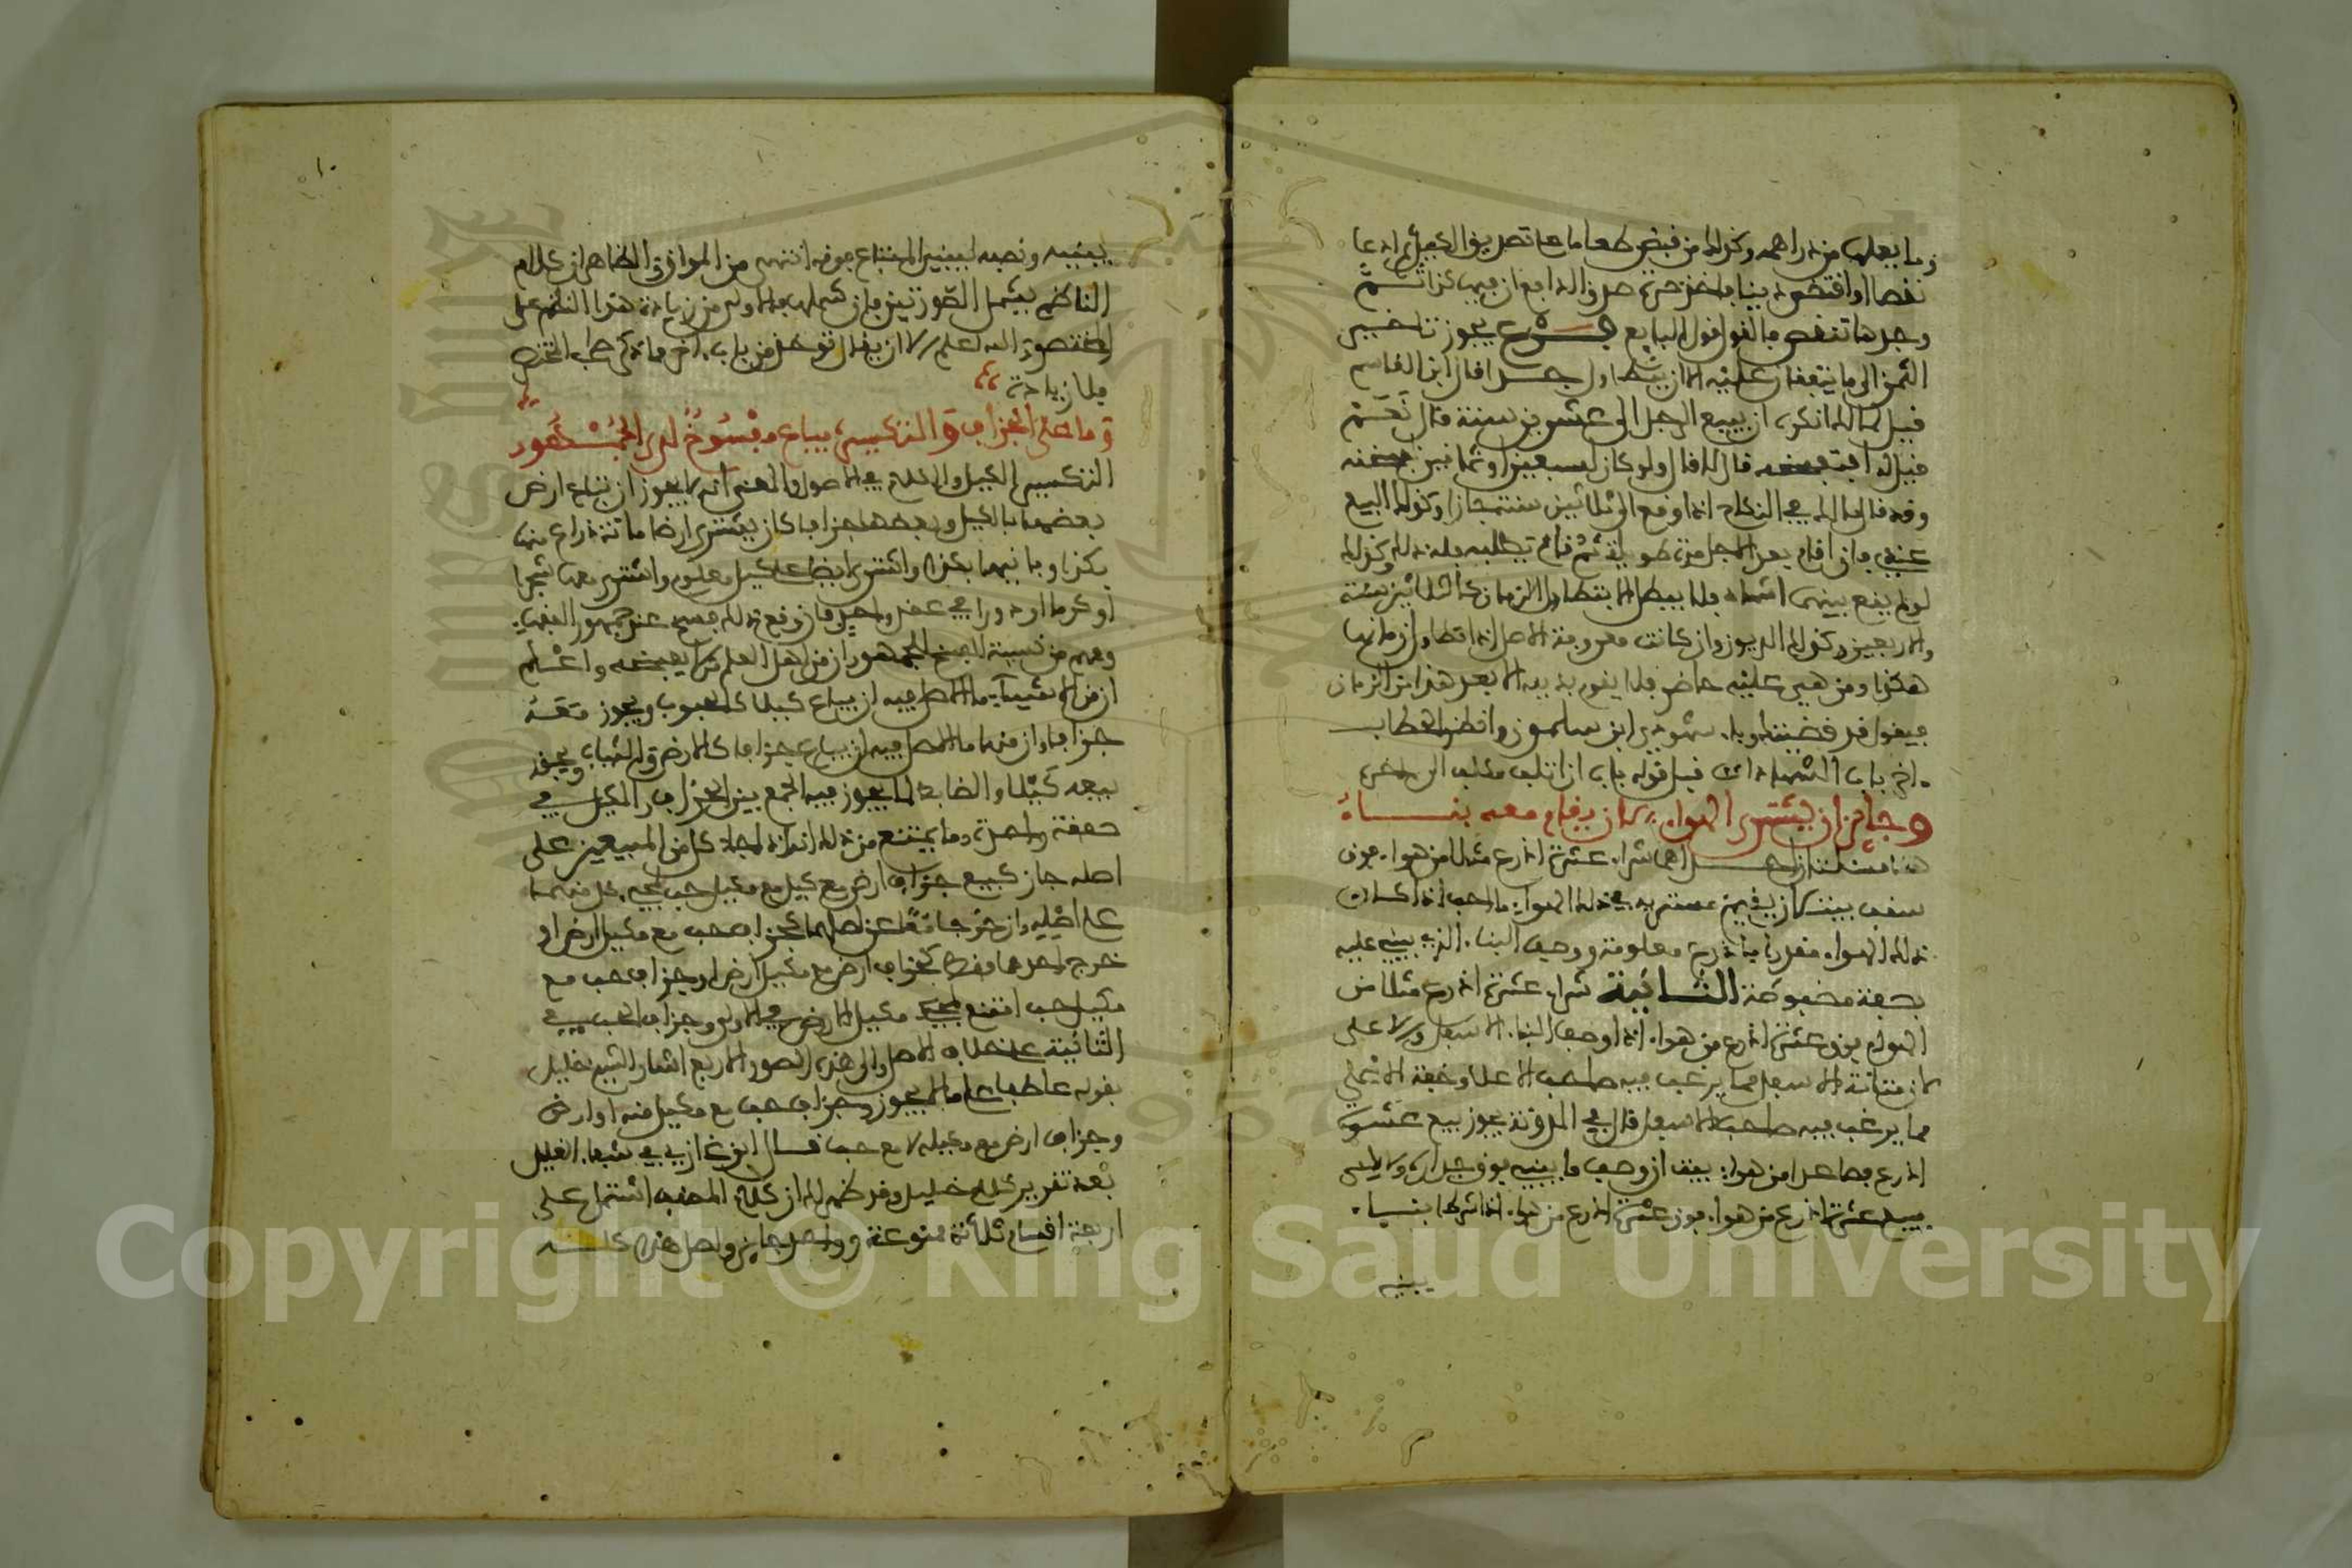 وما يعلم من دراهمه وكذلك من قبض طعاما على تصديق الكيل ثم ادعى
نقصا او اقتضى دينا فاخذ صرة صدق الدافع ان فيها كذا ثم
وجدها تنقص فالقول قول البايع فرع يجوز تاخير
الثمن الى ما يتفقان عليه الا ان يتطاول جدا قال ابن القاسم
قيل لمالك اتكره ان يبيع الرجل الى عشرين سنة قال نعم
قيل له افتفسخه قال لا قال ولو كان لسبعين او ثمانين فسخته
وقد قال مالك في النكاح اذا وقع الى ثلاثين سنة جاز وكذلك البيع
عندي فان اقام بعد الاجل مدة طويلة ثم قام يطلبه فله ذلك وكذلك
لو لم يقع بينهما اشهاد فلا يبطل الا بتطاول الزمان كالثلاثين سنة
والاربعين وكذلك الديون وان كانت معروفة الاصل اذا تطاول زمانها
هكذا ومن هي عليه حاضر فلا يقوم بدينه الا بعد هذا من الزمان
فيقول قد قضيتك وباد شهودي ابن سلمون وانظر الحطاب
اخر باب الشهادات قبل قوله باب ان اتلف مكلف الى اخره
وجايز ان يشترى الهواء لان يقام معه بناء
هنا مسئلتان احداهما شراء عشرة اذرع مثلا من هواء فوق
سقف بيت كان يقيمه مشتريه في ذلك الهواء فاحب اذا كان
ذلك الهواء مقدرا باذرع معلومة ووصف البناء الذي يبنى عليه
بصفة مضبوطة الثانية شراء عشرة اذرع مثلا من
الهواء فوق عشرة اذرع من هواء اذا وصف البناء الاسفل والاعلى
لان متانة الاسفل مما يرغب فيه صاحب الاعلا وخفة الاعلى
مما يرغب فيه صاحب الاسفل قال في المدونة يجوز بيع عشرة
اذرع فصاعدا من هواء بيت ان وصف ما يبنيه فوق جداره ولا يجوز
بيع عشرة اذرع من هواء فوق عشرة اذرع من هواء الا اذا شرط بناء
يبنيه
١٠
يبنيه ونصبه ليبني المبتاع فوقه انتهى من المواق والظاهر ان كلام
الناظم يشمل الصورتين فان شملهما والا ولى من زيادة هذا النظم على
المختصر والله اعلم الا ان يقال توخذ من باب اخر
بلا زيادة
وما على الجزاف والتكسير يباع مفسوخ لدى الجمهور
التكسير الكيل والكلام في الاصول والمعنى انه لا يجوز ان تباع ارض
بعضها بالكيل وبعضها جزافا كان يشتري ارضا مائة ذراع منها
بكذا وباقيها بكذا واشترى ايضا على كيل معلوم واشترى معها شجرا
او كرما او دورا في عقد واحد فان وقع ذلك فسخ عند جمهور الفقهاء
وفهم من نسبة الفسخ للجمهور ان من اهل العلم من لا يفسخه واعلم
ان من الاشياء ما الاصل فيه ان يباع كيلا كالحبوب ويجوز بيعه
جزافا وان منها ما الاصل فيه ان يباع جزافا كالارض والثياب ويجوز
بيعه كيلا والضابط لما يجوز فيه الجمع بين الجزاف والمكيل في
صفقة واحدة وما يمتنع من ذلك انه اذا جاء كل من المبيعين على
اصله جاز كبيع جزاف ارض مع مكيل حب لمجيء كل منهما
على اصله وان خرجا معا عن اصلهما كجزاف حب مع مكيل ارض او
خرج احدهما فقط كجزاف ارض مع مكيل ارض او جزاف حب مع
مكيل حب امتنع لمجيء مكيل الارض في الاولى وجزاف الحب في
الثانية على خلاف الاصل والى هذه الصور الاربع اشار الشيخ خليل
بقوله عاطفا على ما لا يجوز وجزاف حب مع مكيل منه او ارض
وجزاف ارض مع مكيله لا مع حب قال ابن غازي في شفاء الغليل
بعد تقرير كلام خليل وقد ظهر لك ان كلام المصنف اشتمل على
اربعة اقسام ثلاثة ممنوعة وواحد جايز واصل هذا كله
Copyright © King Saud University
1957